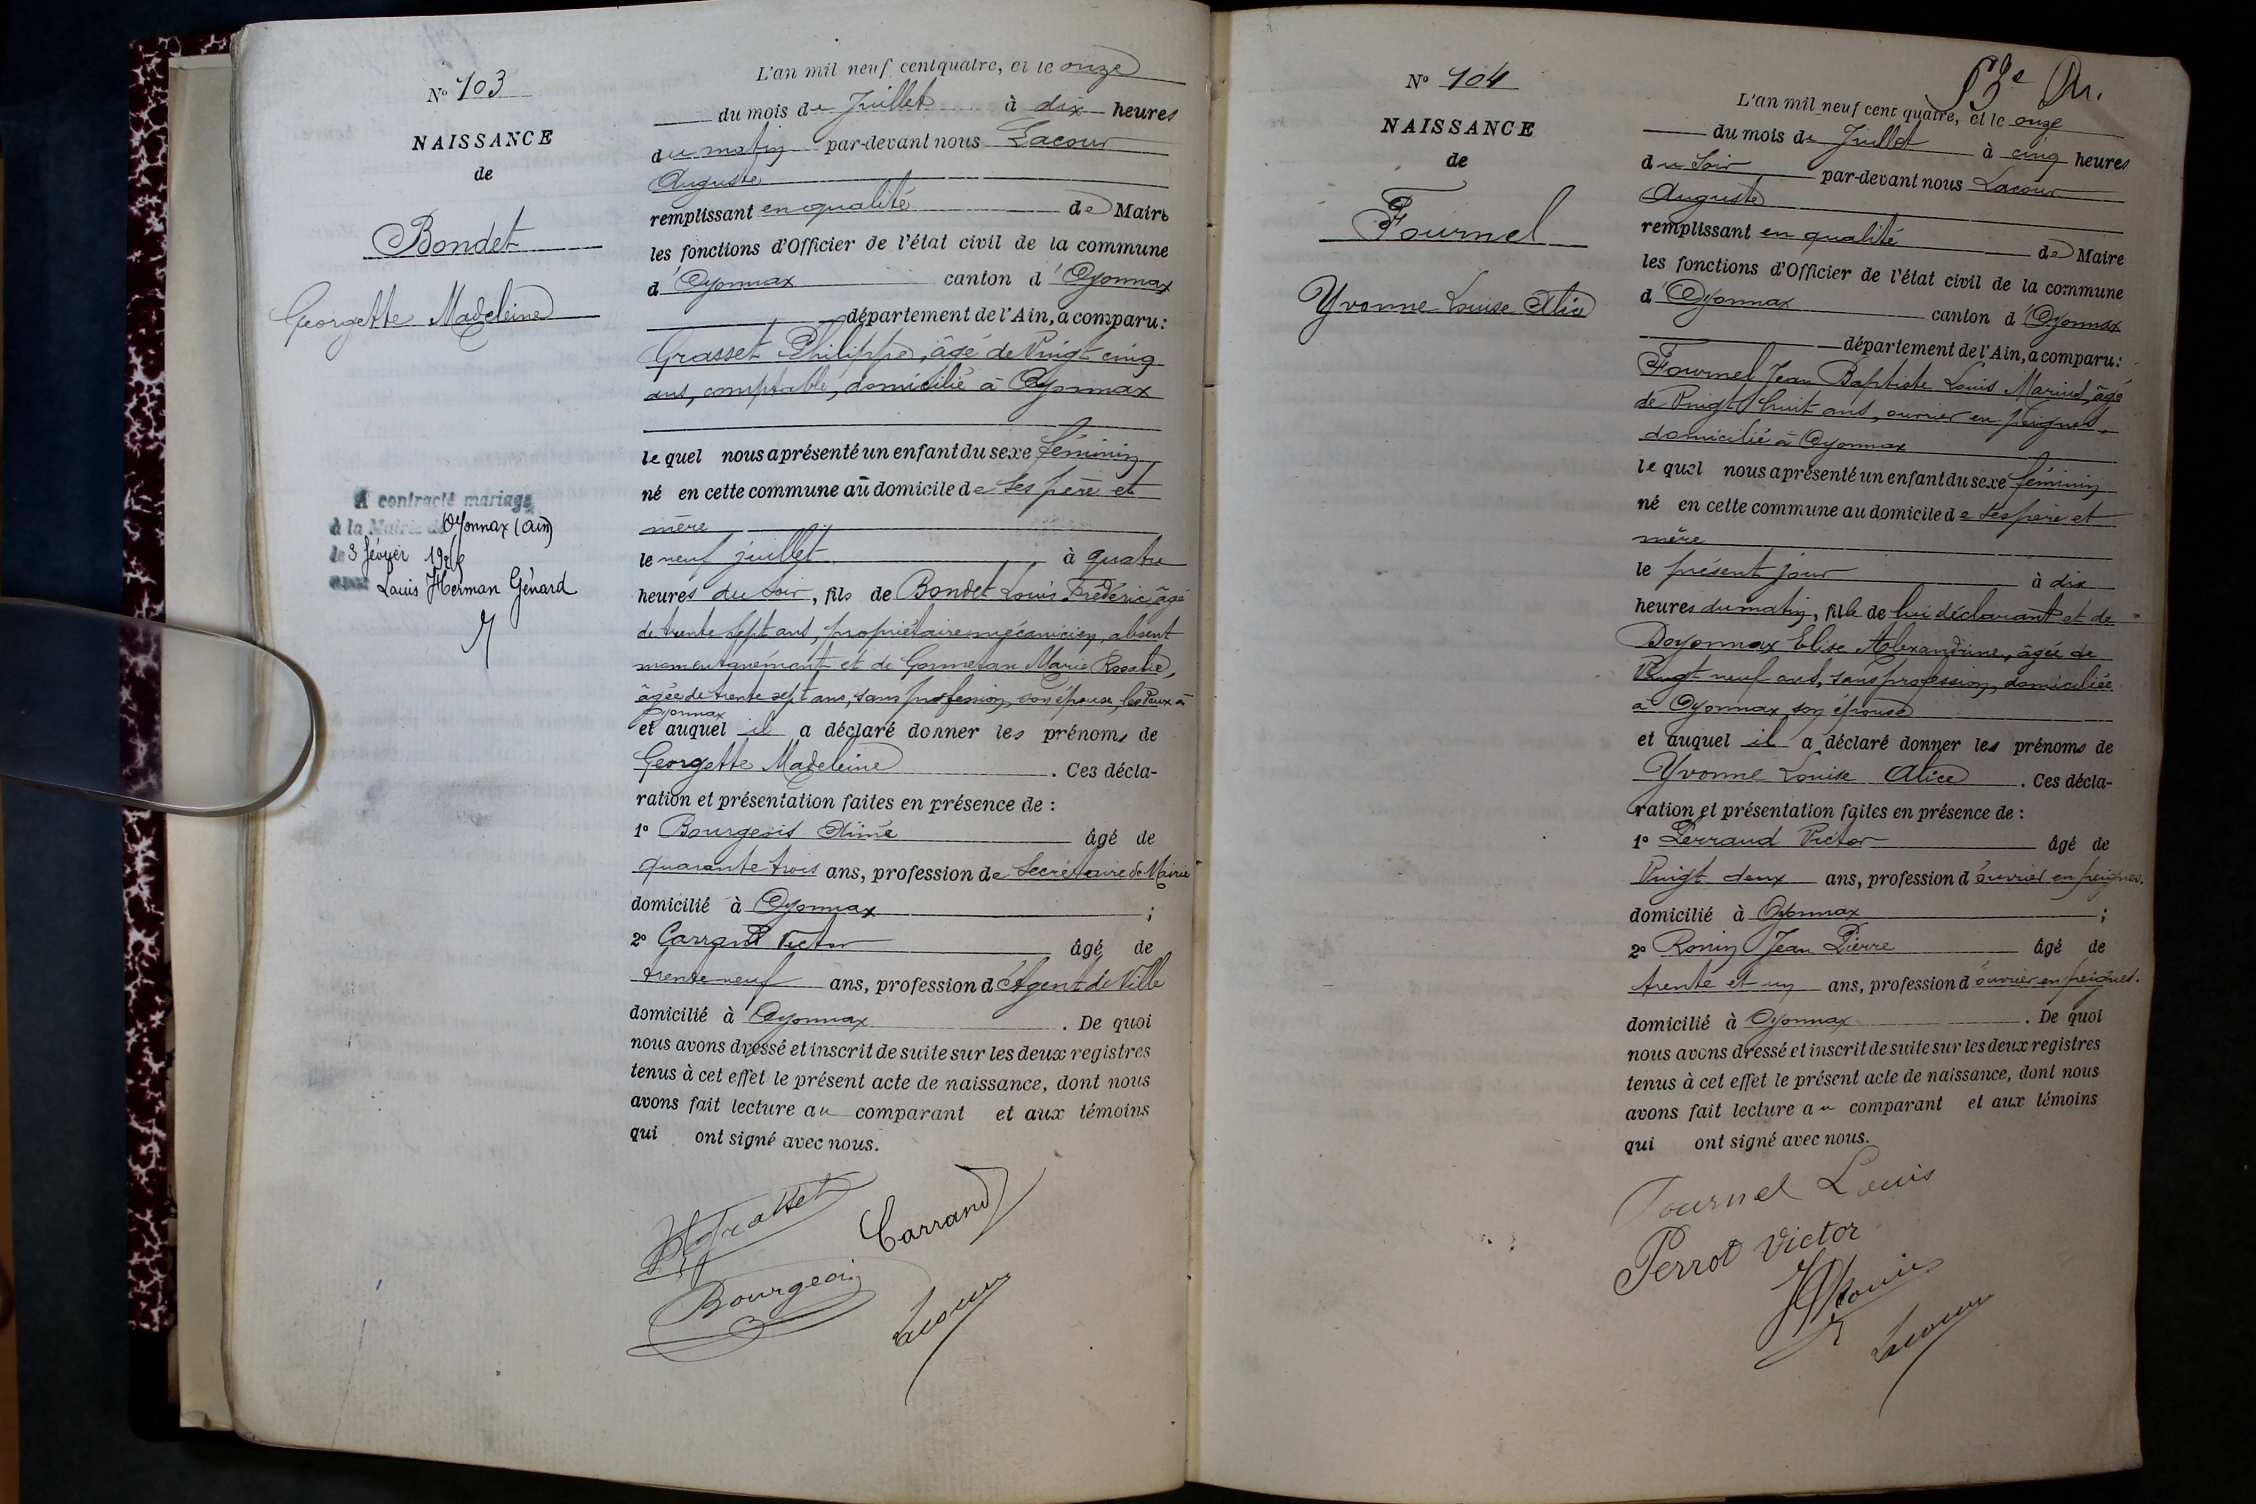 N° 103
NAISSANCE
de
Bondet
Georgette Madeleine
A contracté mariage
à la Mairie de Oyonnax (Ain)
le 3 février 1926
avec Louis Herman Génard
L'an mil neuf cent quatre, et le onze
du mois de Juillet à dix heures
du matin par-devant nous Lacour
Auguste
remplissant en qualité de Maire
les fonctions d'Officier de l'état civil de la commune
d'Oyonnax canton d'Oyonnax
département de l'Ain, a comparu :
Grasset Philippe, âgé de Vingt cinq
ans, comptable, domicilié à Oyonnax
lequel nous a présenté un enfant du sexe féminin
né en cette commune au domicile de ses père et
mère
le neuf juillet à quatre
heures du soir, fils de Bondet Louis Frédéric âgé
de trente sept ans, propriétaire mécanicien, absent
momentanément et de Marie Rosalie,
âgée de trente sept ans, sans profession, son épouse, les deux à
Oyonnax
et auquel il a déclaré donner les prénoms de
Georgette Madeleine. Ces décla-
ration et présentation faites en présence de :
1° Bourgeois Aimé âgé de
quarante trois ans, profession de Secrétaire de Mairie
domicilié à Oyonnax ;
2° Carrand Victor âgé de
trente neuf ans, profession d'Agent de Ville
domicilié à Oyonnax. De quoi
nous avons dressé et inscrit de suite sur les deux registres
tenus à cet effet le présent acte de naissance, dont nous
avons fait lecture au comparant et aux témoins
qui ont signé avec nous.
Grasset
Carrand
Bourgeois
Lacour
N° 104
NAISSANCE
de
Fournel
Yvonne Louise Alice
L'an mil neuf cent quatre, et le onze
du mois de Juillet à cinq heures
du soir par-devant nous Lacour
Auguste
remplissant en qualité de Maire
les fonctions d'Officier de l'état civil de la commune
d'Oyonnax canton d'Oyonnax
département de l'Ain, a comparu :
Fournel Jean Baptiste Louis Marius, âgé
de Vingt huit ans, ouvrier en peignes,
domicilié à Oyonnax
lequel nous a présenté un enfant du sexe féminin
né en cette commune au domicile de ses père et
mère
le présent jour à dix
heures du matin, fille de lui déclarant et de
Doyonnax Elise Alexandrine, âgée de
Vingt neuf ans, sans profession, domiciliée
à Oyonnax, son épouse
et auquel il a déclaré donner les prénoms de
Yvonne Louise Alice. Ces décla-
ration et présentation faites en présence de :
1° Perraud Victor âgé de
Vingt deux ans, profession d'ouvrier en peignes.
domicilié à Oyonnax ;
2° Ronin Jean Pierre âgé de
trente et un ans, profession d'ouvrier en peignes.
domicilié à Oyonnax. De quoi
nous avons dressé et inscrit de suite sur les deux registres
tenus à cet effet le présent acte de naissance, dont nous
avons fait lecture au comparant et aux témoins
qui ont signé avec nous.
Fournel Louis
Perrot Victor
Lacour